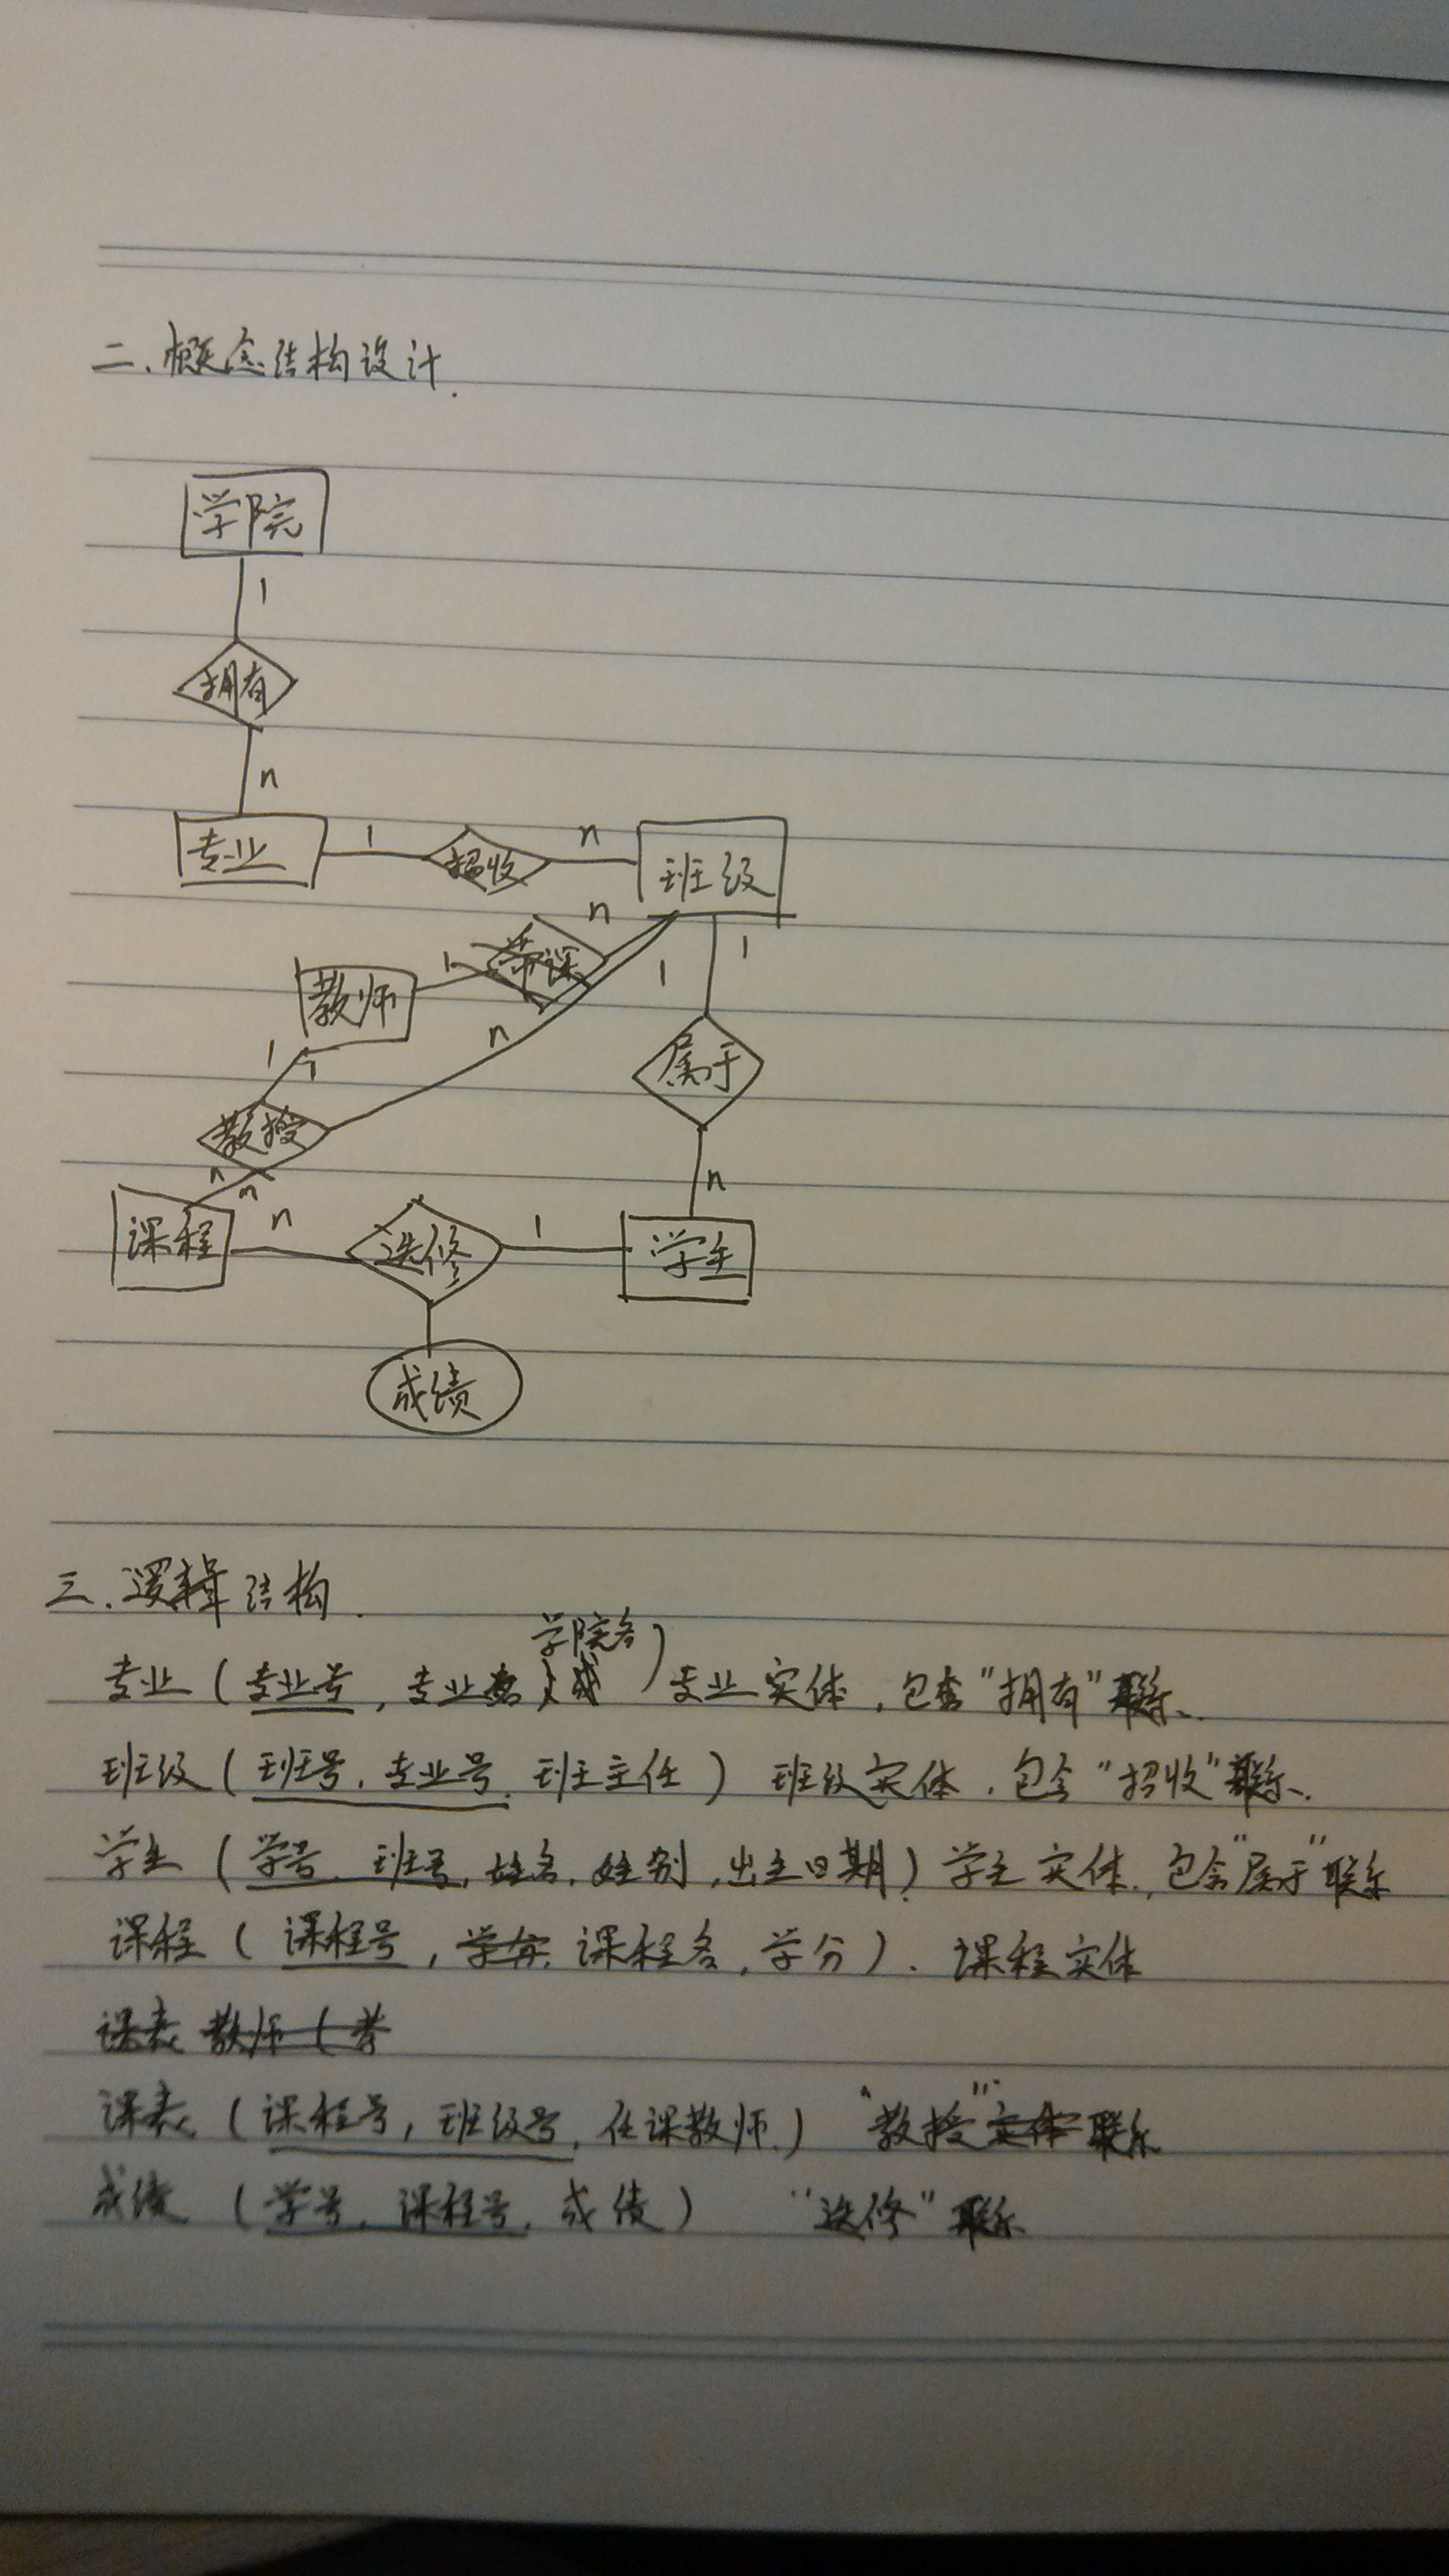 二.概念结构设计.
学院
1
拥有
n
专业 1 招收 n 班级
n
教师 1 带课 1 1
n
1 1 属于
教授
n n n
课程 n 选修 1 学生
成绩
三.逻辑结构.
学院名)
专业(专业号,专业名 专业实体,包含"拥有"联系.
班级(班号,专业号,班主任) 班级实体.包含"招收"联系.
学生(学号,班号,姓名,性别,出生日期)学生实体.,包含"属于"联系
课程(课程号,课程名,学分).课程实体
课表 教师(
课表(课程号,班级号,任课教师.) "教授"实体联系
成绩(学号,课程号,成绩) "选修"联系